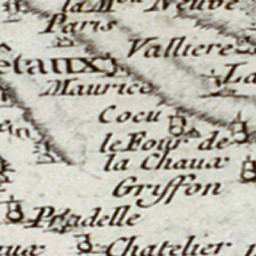 la M Neuve
Paris
Valliere
êtaux
La
Maurice
Cocu
le Four de
la Chaux
Griffon
Pradelle
Chatelier